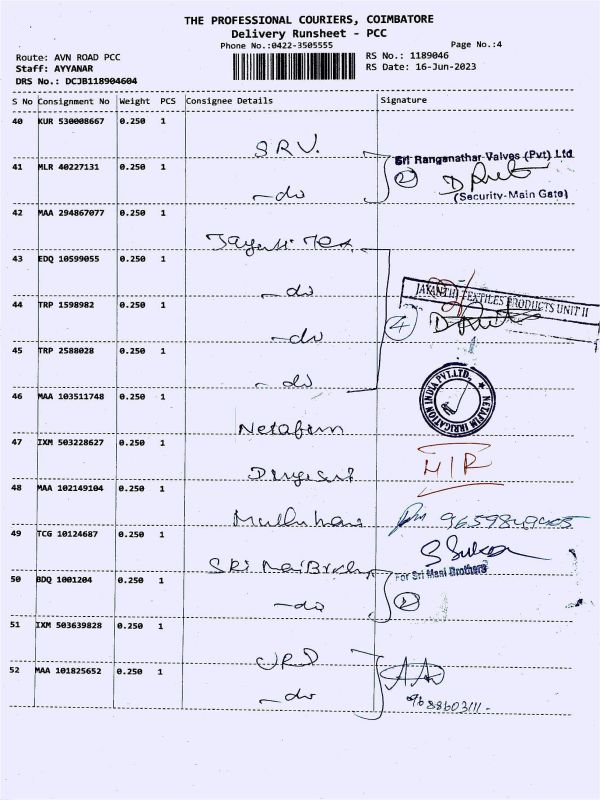 THE PROFESSIONAL COURIERS, COIMBATORE
Delivery Runsheet - PCC
Phone No.:0422-3505555
Page No.:4
Route: AVN ROAD PCC
RS No.: 1189046
Staff: AYYANAR
RS Date: 16-Jun-2023
DRS No.: DCJB118904604
S No Consignment No Weight PCS Consignee Details Signature
40 KUR 530008667 0.250 1 SRV.
Sri Ranganathar Valves (Pvt) Ltd
41 MLR 40227131 0.250 1 -do
2
(Security-Main Gate)
42 MAA 294867077 0.250 1
43 EDQ 10599055 0.250 1 -do
JAYANTHI TEXTILES PRODUCTS UNIT II
44 TRP 1598982 0.250 1 -do
4
45 TRP 2588028 0.250 1 -do
46 MAA 103511748 0.250 1 Netafim
NETAFIM IRRIGATION INDIA PVT.LTD.
47 IXM 503228627 0.250 1
48 MAA 102149104 0.250 1
49 TCG 10124687 0.250 1
For Sri Mani Brothers
50 BDQ 1001204 0.250 1 -do
2
51 IXM 503639828 0.250 1
52 MAA 101825652 0.250 1 -do